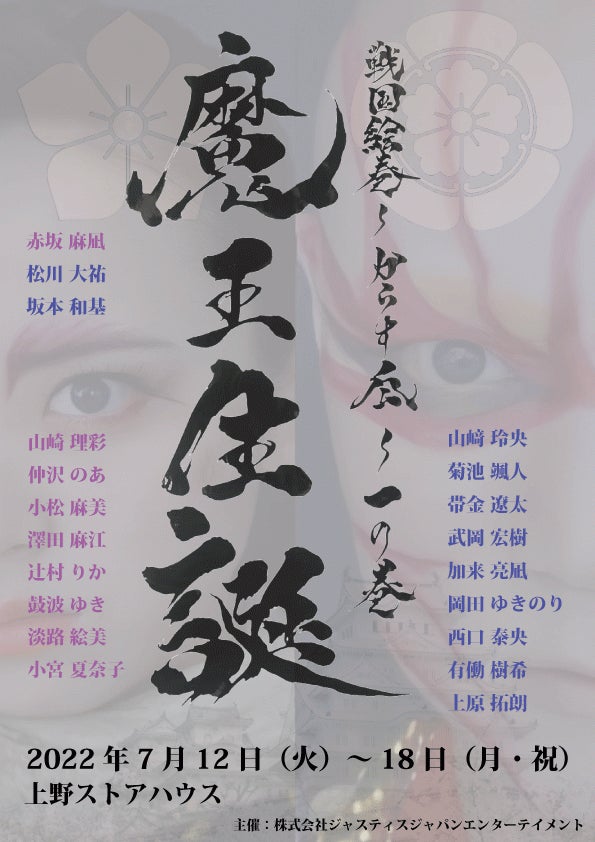 戦国絵巻~からす凪~一の巻
魔王生誕
赤坂 麻凪
松川 大祐
坂本 和基
山崎 理彩
仲沢 のあ
小松 麻美
澤田 麻江
辻村 りか
鼓波 ゆき
淡路 絵美
小宮 夏奈子
山﨑 玲央
菊池 颯人
帯金 遼太
武岡 宏樹
加来 亮凪
岡田 ゆきのり
西口 泰央
有働 樹希
上原 拓朗
2022年7月12日(火)~18日(月・祝)
上野ストアハウス
主催:株式会社ジャスティスジャパンエンターテイメント